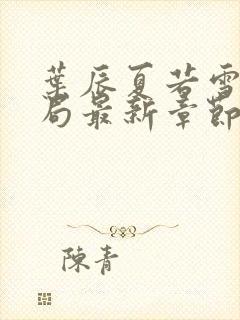 葉辰夏若雪
局最新章節
陳青